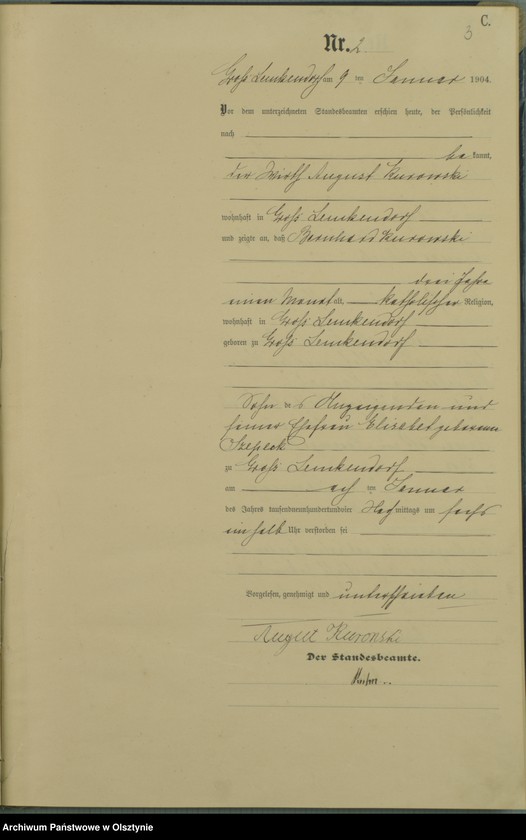 C.
3
Nr. 2
Groß Lemkendorf am 9 ten Januar 1904.
Vor dem unterzeichneten Standesbeamten erschien heute, der Persönlichkeit
nach
be kannt,
der Wirth August Kurowski
wohnhaft in Groß Lemkendorf
und zeigte an, daß Bernhard Kurowski
drei Jahre
einen Monat alt, katholischer Religion,
wohnhaft in Groß Lemkendorf
geboren zu Groß Lemkendorf
Sohn des Anzeigenden und
seiner Ehefrau Elisabet geborenen
zu Groß Lemkendorf
am acht ten Januar
des Jahres tausendneunhundertundvier Nachmittags um sechs
ein halb Uhr verstorben sei
Vorgelesen, genehmigt und unterschrieben
August Kuronski
Der Standesbeamte.
Archiwum Państwowe w Olsztynie